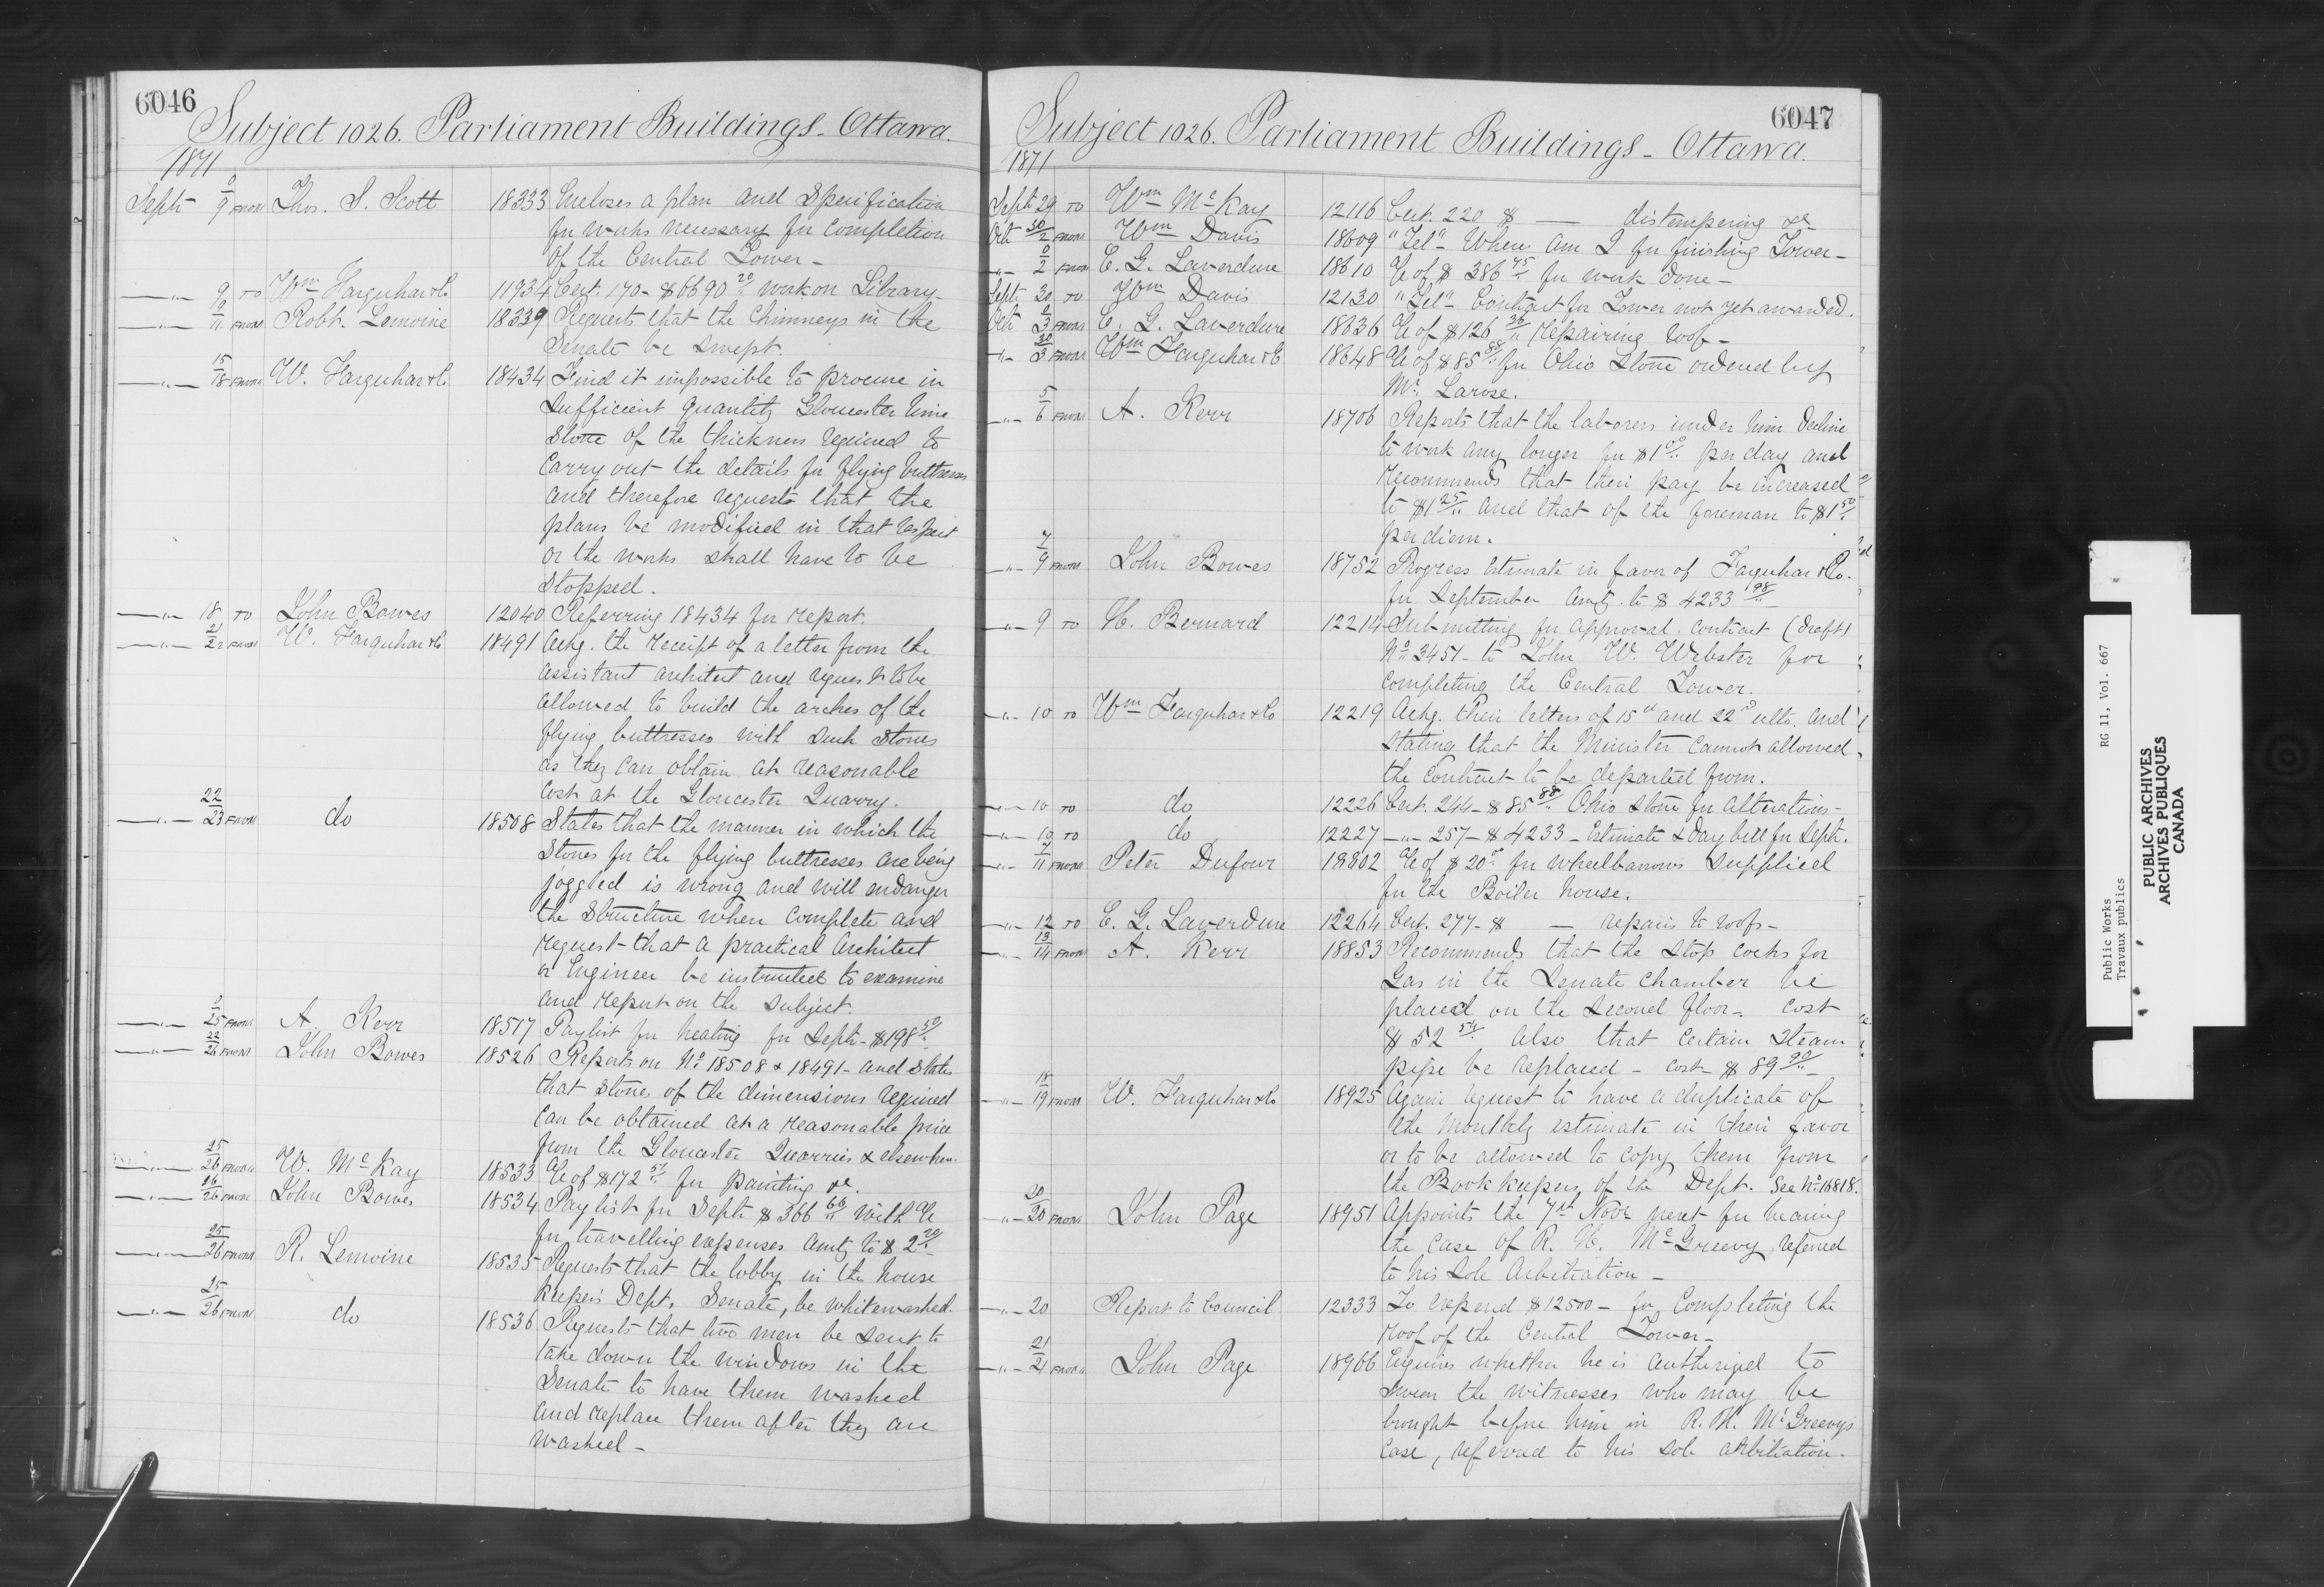 6046
Subject 1026. Parliament Buildings - Ottawa.
1871
Sept 9/9 FROM Thos. S. Scott 18333 Encloses a plan and Specification
for works necessary for completion
of the Central Tower -
—"— 9 TO Wm Farquhar & Co. 11934 Cert. 170 - $6690 20 work on Library -
—"— 9/11 FROM Robt. Lemoine 18339 Requests that the Chimneys in the
Senate be swept.
—"— 15/18 FROM W. Farquhar & Co. 18434 Find it impossible to procure in
sufficient quantity Gloucester lime
stone of the thickness required to
carry out the details for flying buttresses
and therefore requests that the
plans be modified in that respect
or the works shall have to be
stopped.
—"— 18 TO John Bowes 12040 Referring 18434 for report.
—"— 21/22 FROM W. Farquhar & Co 18491 Ackg. the receipt of a letter from the
assistant architect and request to be
allowed to build the arches of the
flying buttresses with such stones
as they can obtain at reasonable
cost at the Gloucester Quarry.
—"— 22/23 FROM do 18508 States that the manner in which the
stones for the flying buttresses are being
joggled is wrong and will endanger
the structure when complete and
request that a practical Architect
or Engineer be instructed to examine
and report on the subject.
—"— 25 FROM A. Kerr 18517 Paylist for heating for Sept - $198 50
—"— 22/26 FROM John Bowes 18526 Reports on No 18508 & 18491 - and States
that stones of the dimensions required
can be obtained at a reasonable price
from the Gloucester Quarries & elsewhere.
—"— 25/26 FROM W. McKay 18533 a/c of $172 51 for painting &c.
—"— 26/26 FROM John Bowes 18534 Paylist for Sept $366 60 with a/c
for travelling expenses amtg to $2 20
—"— 25/26 FROM R. Lemoine 18535 Requests that the lobby in the house
keepers Dept. Senate, be whitewashed.
—"— 25/26 FROM do 18536 Requests that two men be sent to
take down the windows in the
Senate to have them washed
and replace them after they are
washed -
6047
Subject 1026. Parliament Buildings - Ottawa.
1871
Sept 29 TO Wm McKay 12116 Cert. 220 $ — distempering &c
Oct 30/2 FROM Wm Davis 18609 "Tel" When am I for finishing Tower -
—"— 2 FROM E. G. Laverdure 18610 a/c of $386 45 for work done -
Sept 30 TO Wm Davis 12130 "Tel" Contract for Tower not yet awarded.
Oct 2/3 FROM E. G. Laverdure 18636 a/c of $126 36 repairing roof -
—"— 30/3 FROM Wm Farquhar & Co 18648 a/c of $85 88 for Ohio Stone ordered by
Mr. Larose.
—"— 5/6 FROM A. Kerr 18706 Reports that the laborers under him decline
to work any longer for $1 00 per day and
recommends that their pay be increased
to $1 25 and that of the foreman to $1 50
per diem.
—"— 7/9 FROM John Bowes 18752 Progress Estimate in favor of Farquhar & Co.
for September amtg. to $4233 98
—"— 9 TO H. Bernard 12214 Submitting for approval contract (draft)
No 3451 - to John W. Webster for
completing the Central Tower.
—"— 10 TO Wm Farquhar & Co 12219 Ackg. their letters of 15th and 22nd ulto. and
stating that the Minister cannot allowed
the contract to be departed from.
—"— 10 TO do 12226 Cert. 244 - $85 88 Ohio stone for alterations -
—"— 10 TO do 12227 —"— 257 - $4233 - Estimate & day bill for Sept.
—"— 7/11 FROM Peter Dufour 18802 a/c of $20 00 for wheelbarrows supplied
for the Boiler house.
—"— 12 TO E. G. Laverdure 12264 Cert. 277 - $ — repairs to roofs -
—"— 13/14 FROM A. Kerr 18853 Recommends that the stop cocks for
Gas in the Senate Chamber be
placed on the second floor - cost
$52 54 also that certain steam
pipe be replaced - cost $89 90
—"— 18/19 FROM W. Farquhar & Co 18925 Again request to have a duplicate of
the monthly estimate in their favor
or to be allowed to copy them from
the Book keepers of the Dept. See No. 16818.
—"— 20/20 FROM John Page 18951 Appoints the 7th Novr next for hearing
the case of R. H. McGreevy referred
to his sole Arbitration -
—"— 20 Report to Council 12333 To expend $12500 - for completing the
roof of the Central Tower -
—"— 21/21 FROM John Page 18966 Enquires whether he is authorized to
swear the witnesses who may be
brought before him in R. H. McGreevys
case, referred to his sole arbitration.
Public Works RG 11, Vol. 667
Travaux publics
PUBLIC ARCHIVES
ARCHIVES PUBLIQUES
CANADA